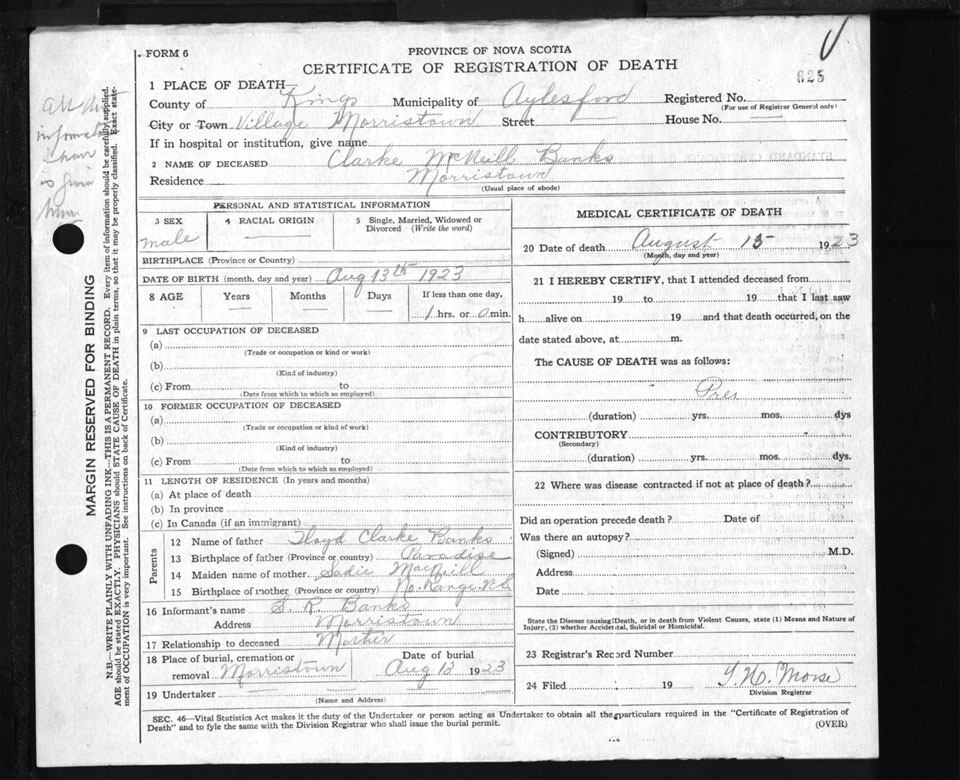 FORM 6
PROVINCE OF NOVA SCOTIA
CERTIFICATE OF REGISTRATION OF DEATH
625
1 PLACE OF DEATH
County of Kings Municipality of Aylesford Registered No.
(For use of Registrar General only)
City or Town Village Morristown Street House No.
If in hospital or institution, give name
2 NAME OF DECEASED Clarke McNeill Banks
Residence Morristown
(Usual place of abode)
PERSONAL AND STATISTICAL INFORMATION
3 SEX 4 RACIAL ORIGIN 5 Single, Married, Widowed or Divorced (Write the word)
male
BIRTHPLACE (Province or Country)
DATE OF BIRTH (month, day and year) Aug 13th 1923
8 AGE Years Months Days If less than one day,
1 hrs. or 0 min.
9 LAST OCCUPATION OF DECEASED
(a)
(Trade or occupation or kind or work)
(b)
(Kind of industry)
(c) From to
(Date from which to which so employed)
10 FORMER OCCUPATION OF DECEASED
(a)
(Trade or occupation or kind of work)
(b)
(Kind of industry)
(c) From to
(Date from which to which so employed)
11 LENGTH OF RESIDENCE (In years and months)
(a) At place of death
(b) In province
(c) In Canada (if an immigrant)
Parents
12 Name of father Lloyd Clarke Banks
13 Birthplace of father (Province or country) Paradise
14 Maiden name of mother Sadie MacNeill
15 Birthplace of mother (Province or country) No. Range N.S
16 Informant's name S. R. Banks
Address Morristown
17 Relationship to deceased Mother
18 Place of burial, cremation or removal Morristown
Date of burial
Aug 13 1923
19 Undertaker
(Name and Address)
MEDICAL CERTIFICATE OF DEATH
20 Date of death August 15 1923
(Month, day and year)
21 I HEREBY CERTIFY, that I attended deceased from
19 to 19 that I last saw
h alive on 19 and that death occurred, on the
date stated above, at m.
The CAUSE OF DEATH was as follows:
Pre
(duration) yrs. mos. dys
CONTRIBUTORY
(Secondary)
(duration) yrs. mos. dys.
22 Where was disease contracted if not at place of death?
Did an operation precede death? Date of
Was there an autopsy?
(Signed) M.D.
Address
Date
State the Disease causing Death, or in death from Violent Causes, state (1) Means and Nature of
Injury, (2) whether Accidental, Suicidal or Homicidal.
23 Registrar's Record Number
24 Filed 19
Morse
Division Registrar
SEC. 46—Vital Statistics Act makes it the duty of the Undertaker or person acting as Undertaker to obtain all the particulars required in the "Certificate of Registration of
Death" and to fyle the same with the Division Registrar who shall issue the burial permit.
(OVER)
MARGIN RESERVED FOR BINDING
N.B.—WRITE PLAINLY WITH UNFADING INK—THIS IS A PERMANENT RECORD. Every item of information should be carefully supplied.
AGE should be stated EXACTLY. PHYSICIANS should STATE CAUSE OF DEATH in plain terms, so that it may be properly classified. Exact statement of OCCUPATION is very important. See instructions on back of Certificate.